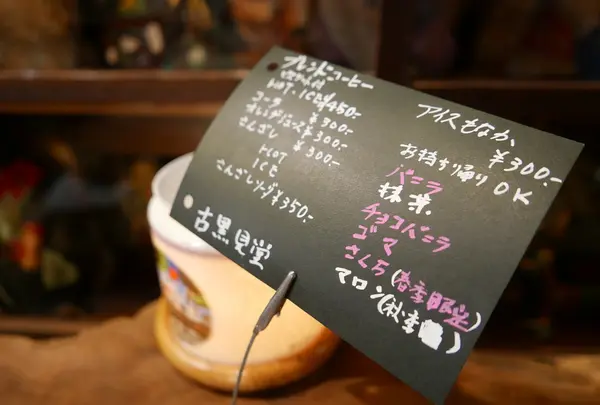 ブレンドコーヒー
HOT・ICE ¥450-
コーラ ¥300-
オレンジジュース ¥300-
さんざし ¥300-
HOT
ICE
さんざしソーダ ¥350-
古黒見堂
アイスもなか
¥300.-
お持ち帰りOK
バニラ
抹茶
チョコバニラ
ゴマ
さくら(春季限定)
マロン(秋季)